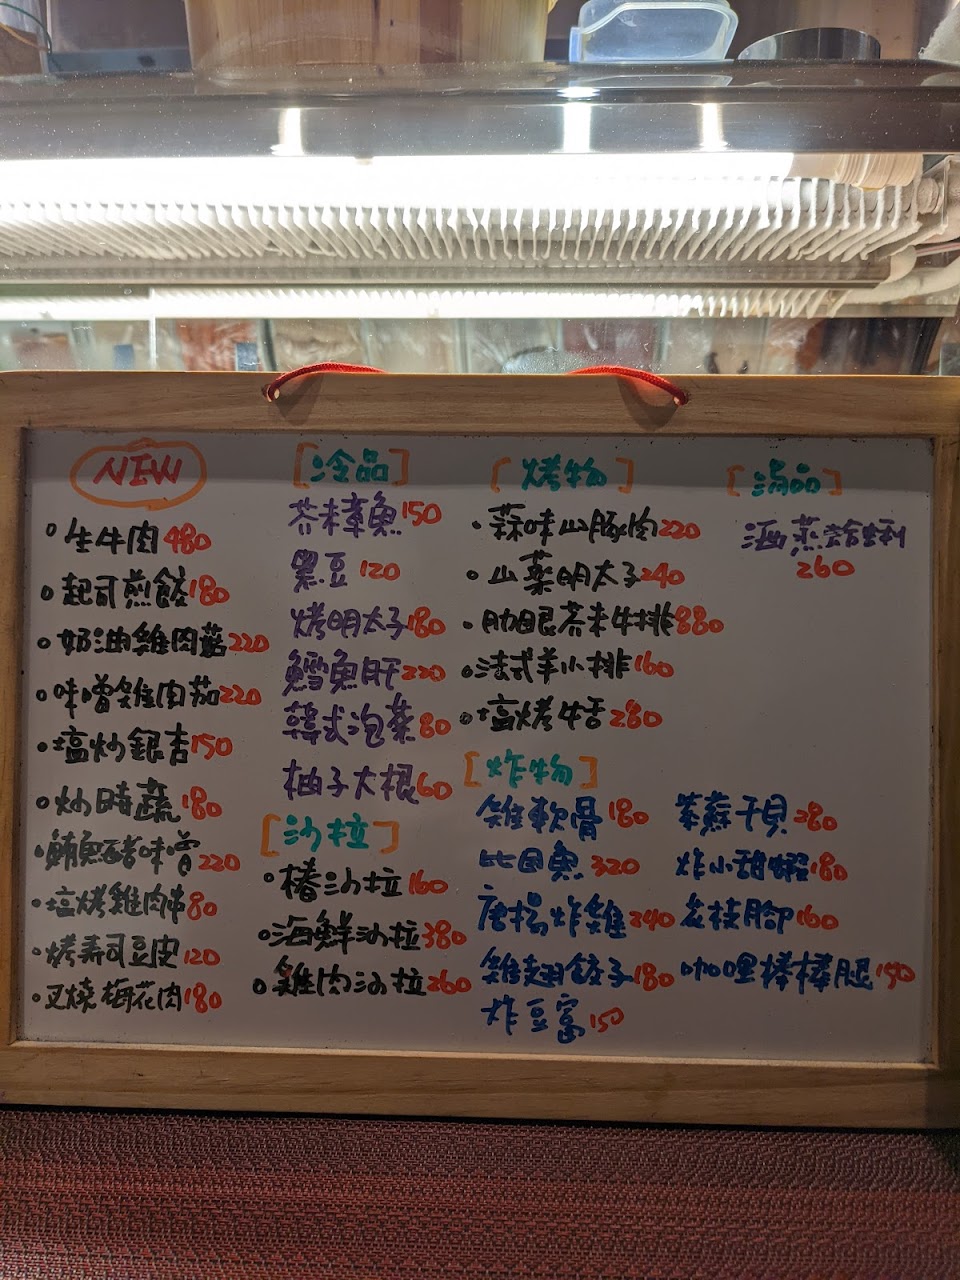 NEW
生牛肉 480
起司煎餃 180
奶油雞肉菇 220
味噌雞肉茄 220
塩炒銀杏 150
炒時蔬 180
鮪魚酪味噌 220
塩烤雞肉串 80
烤寿司豆皮 120
叉燒梅花肉 180
[冷品]
芥末章魚 150
黑豆 120
烤明太子 180
鱈魚肝 220
韓式泡菜 80
柚子大根 60
[沙拉]
椿沙拉 160
海鮮沙拉 380
雞肉沙拉 260
[烤物]
蒜味山豚肉 220
山藥明太子 240
肋眼芥末牛排 880
法式羊小排 160
塩烤牛舌 280
[炸物]
雞軟骨 180
比目魚 320
唐揚炸雞 240
雞翅餃子 180
炸豆富 150
紫蘇干貝 280
炸小甜蝦 180
花枝腳 160
咖哩棒棒腿 150
[湯品]
酒蒸蛤蜊
260